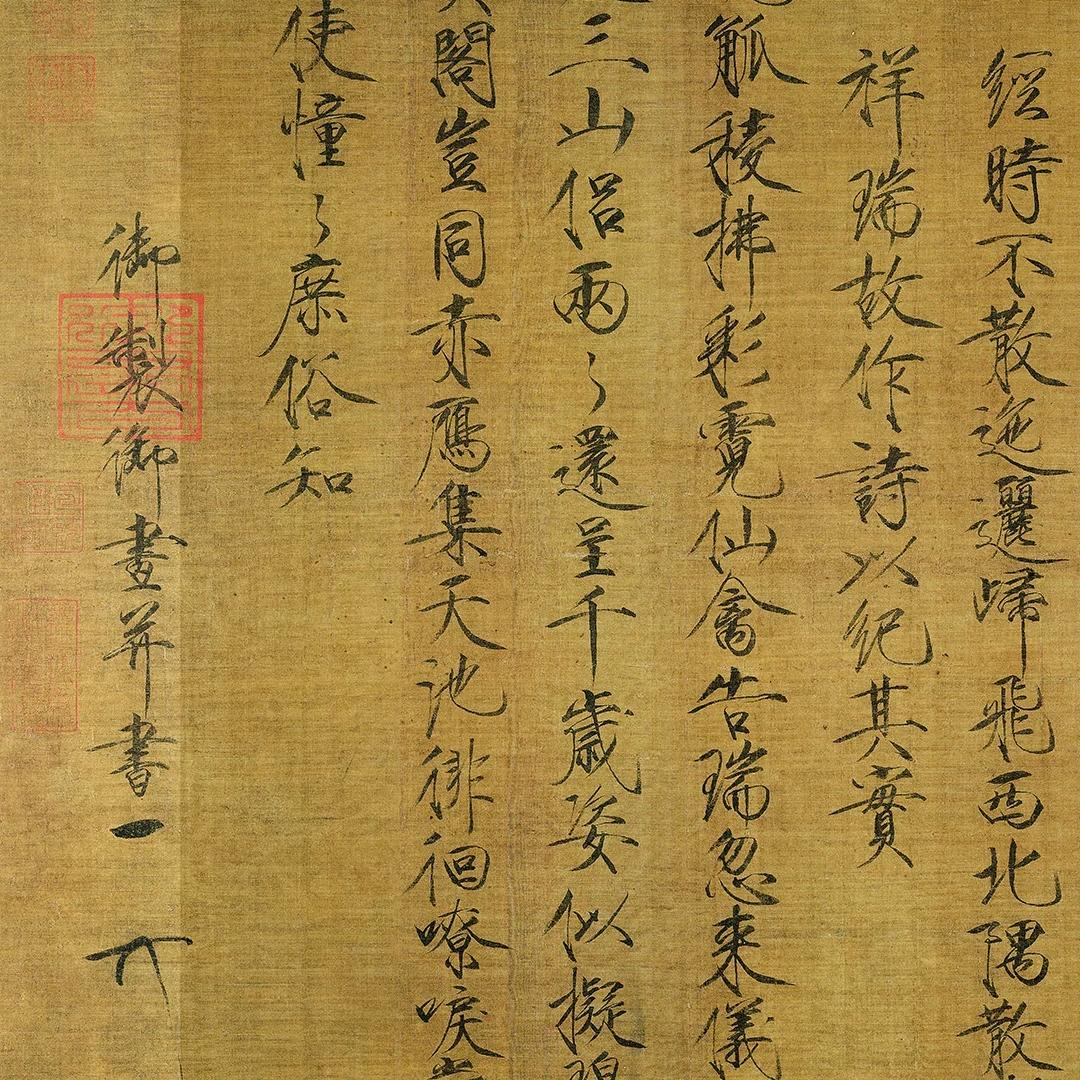 經時不散迤邐歸飛西北隅散
祥瑞故作詩以紀其實
觚稜拂彩霓仙禽告瑞忽來儀
三山侶兩〻還呈千歲姿似擬碧
閣豈同赤鴈集天池徘徊嘹唳當
使憧〻庶俗知
御製御畫并書